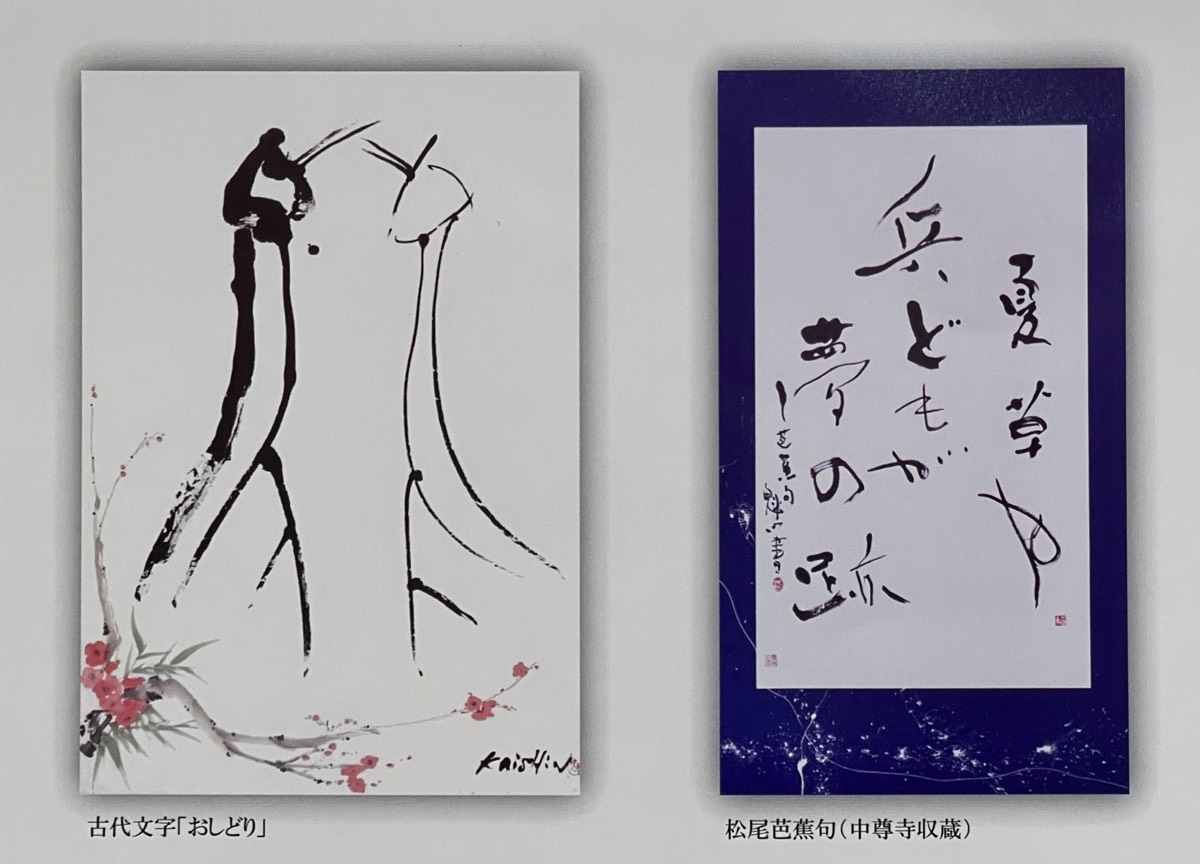 Kaishin
古代文字「おしどり」
夏草や
兵どもが
夢の跡
芭蕉句 魁心書
松尾芭蕉句（中尊寺収蔵）